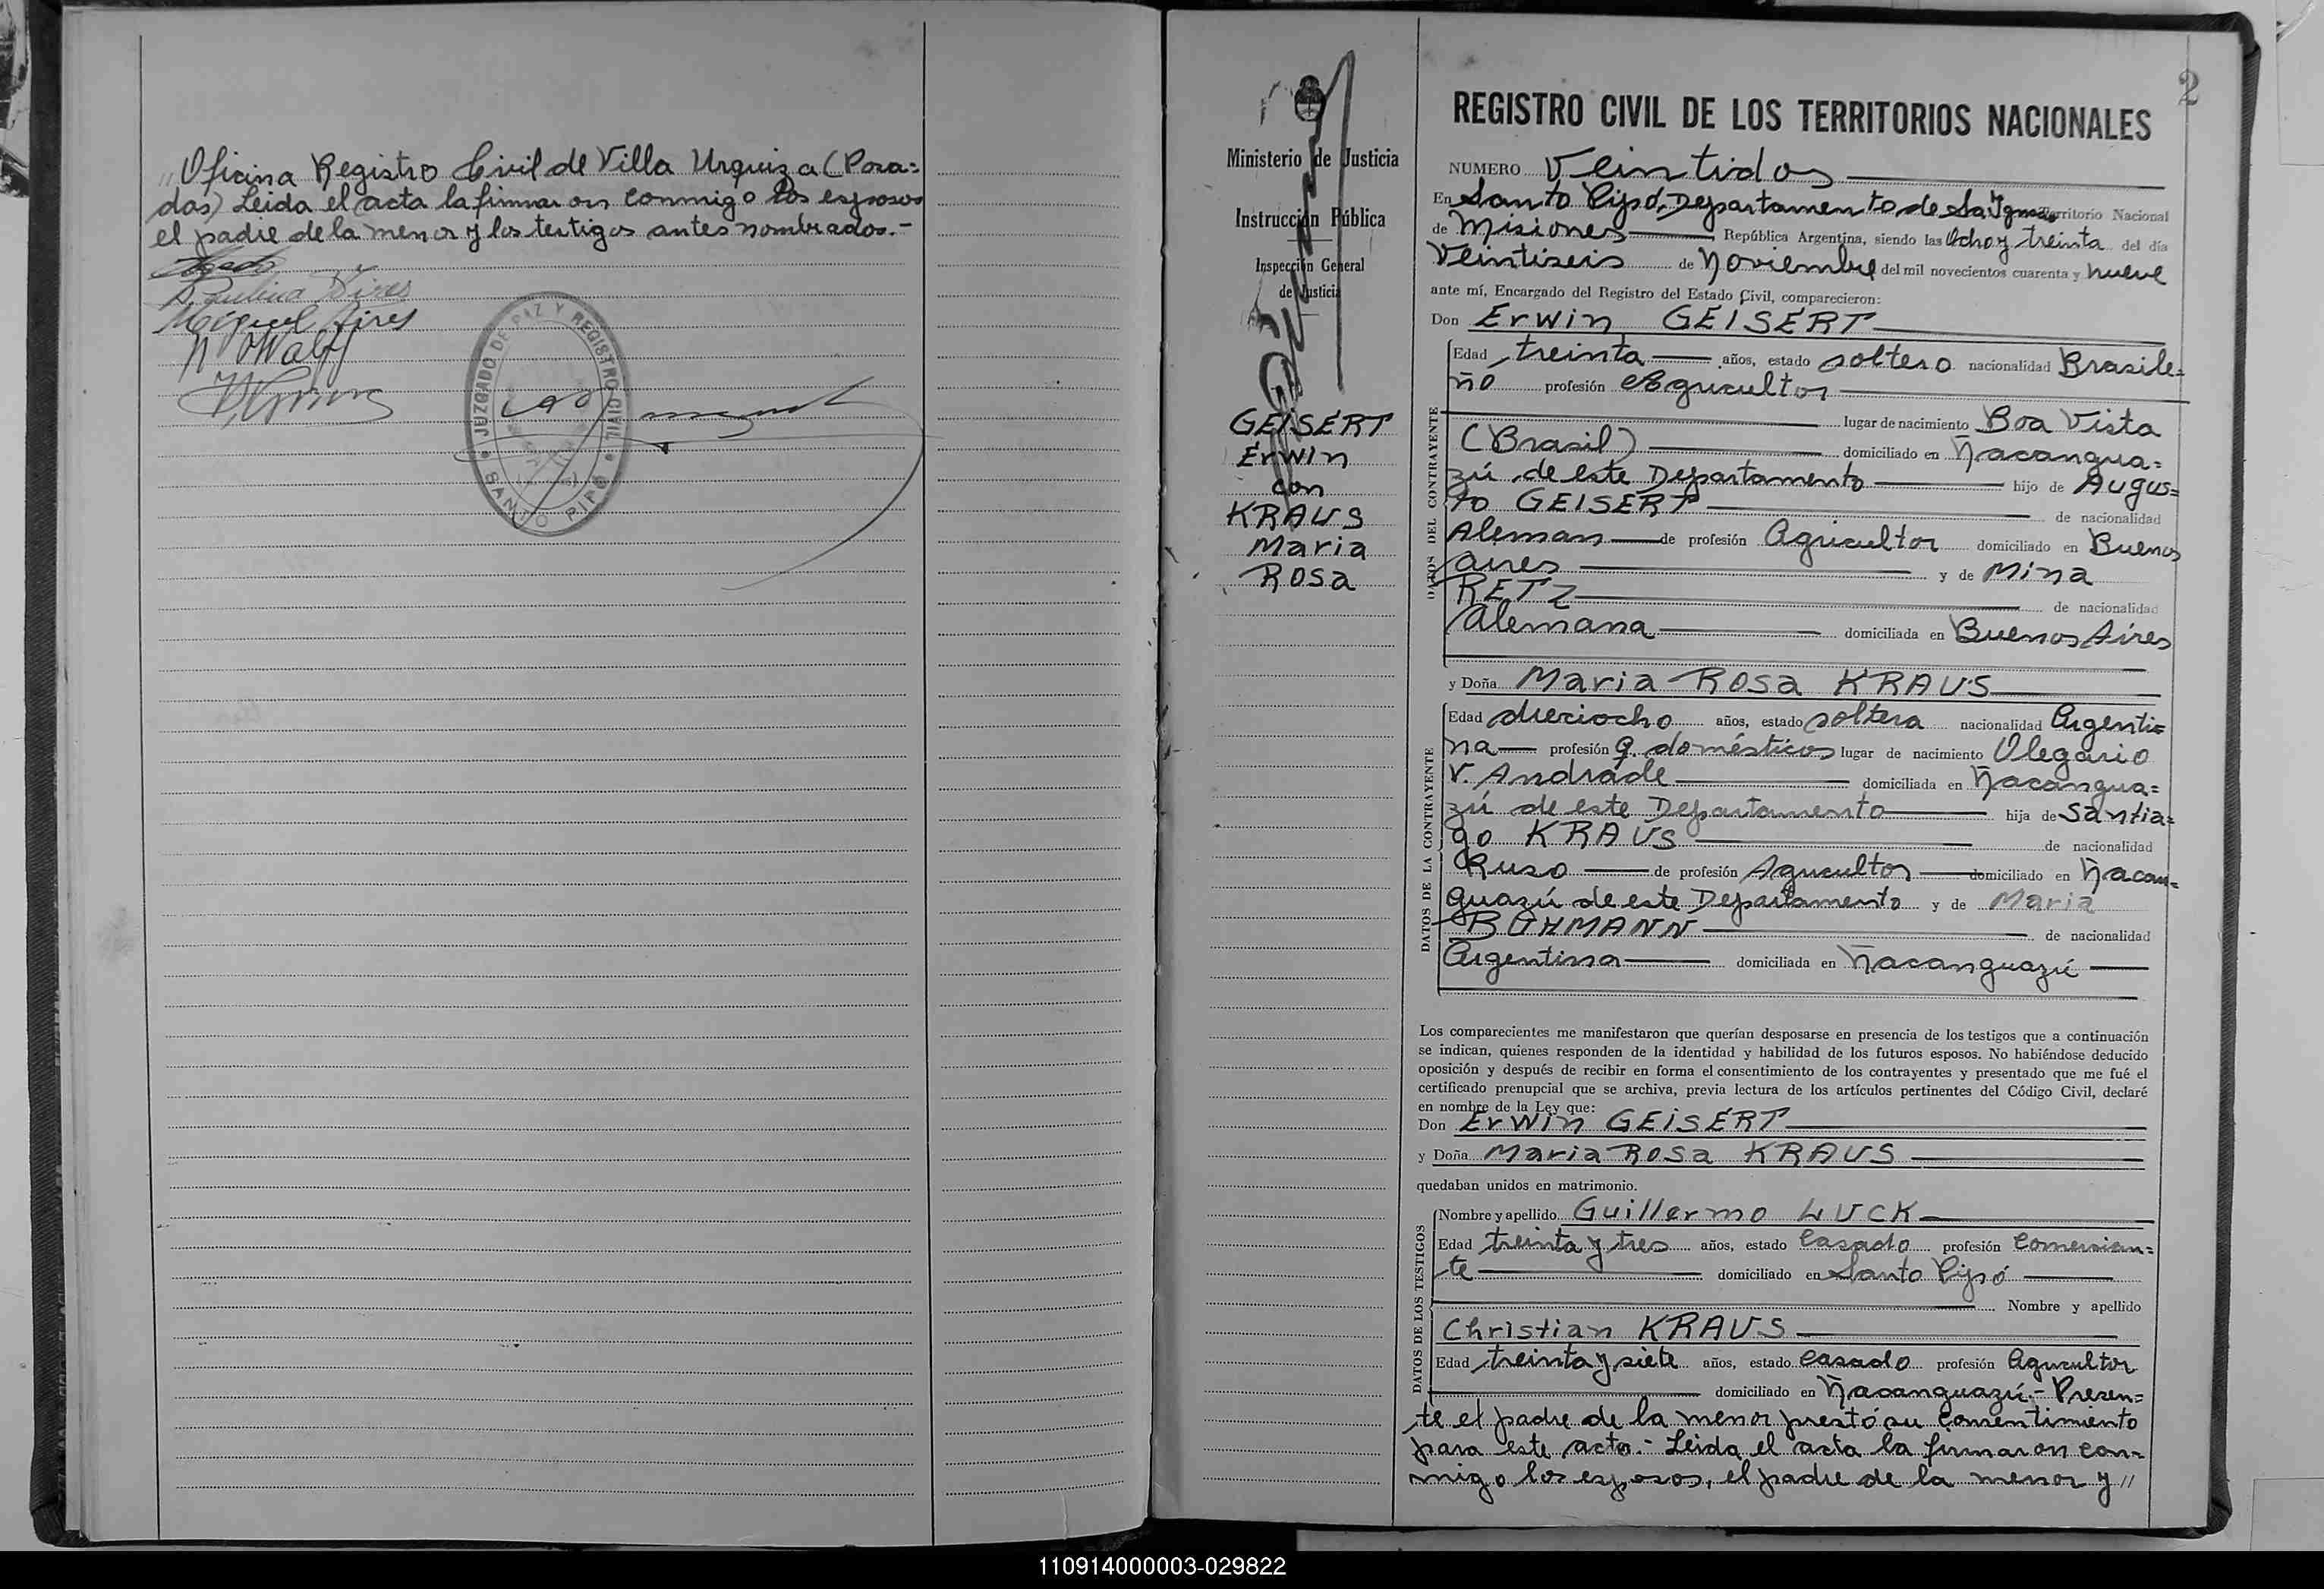 „Oficina Registro Civil de Villa Urquiza (Posa=
das) Leida el acta la firmaron conmigo los esposos
el padre de la menor y los testigos antes nombrados.-
Paulina Aires
Miguel Aires
JUZGADO DE PAZ Y REGISTRO CIVIL
SANTO PIPÓ
2
Ministerio de Justicia
Instrucción Pública
Inspección General
de Justicia
GEISERT
Erwin
con
KRAUS
Maria
Rosa
REGISTRO CIVIL DE LOS TERRITORIOS NACIONALES
NUMERO Veintidos
En Santo Pipó, Departamento de S. Ignacio Territorio Nacional
de Misiones República Argentina, siendo las Ocho y treinta del día
Veintiseis de Noviembre del mil novecientos cuarenta y nueve
ante mí, Encargado del Registro del Estado Civil, comparecieron:
Don Erwin GEISERT
DATOS DEL CONTRAYENTE
Edad treinta años, estado soltero nacionalidad Brasile=
ño profesión Agricultor
lugar de nacimiento Boa Vista
(Brasil) domiciliado en Ñacangua=
zú de este Departamento hijo de Augus=
to GEISERT de nacionalidad
Aleman de profesión Agricultor domiciliado en Buenos
Aires y de Mina
RETZ de nacionalidad
Alemana domiciliada en Buenos Aires
y Doña Maria Rosa KRAUS
DATOS DE LA CONTRAYENTE
Edad dieciocho años, estado soltera nacionalidad Argenti=
na profesión q. domésticos lugar de nacimiento Olegario
V. Andrade domiciliada en Ñacangua=
zú de este Departamento hija de Santia=
go KRAUS de nacionalidad
Ruso de profesión Agricultor domiciliado en Ñacan=
guazú de este Departamento y de Maria
BUHMANN de nacionalidad
Argentina domiciliada en Ñacanguazú
Los comparecientes me manifestaron que querían desposarse en presencia de los testigos que a continuación
se indican, quienes responden de la identidad y habilidad de los futuros esposos. No habiéndose deducido
oposición y después de recibir en forma el consentimiento de los contrayentes y presentado que me fué el
certificado prenupcial que se archiva, previa lectura de los artículos pertinentes del Código Civil, declaré
en nombre de la Ley que:
Don Erwin GEISERT
y Doña Maria Rosa KRAUS
quedaban unidos en matrimonio.
DATOS DE LOS TESTIGOS
Nombre y apellido Guillermo LUCK
Edad treinta y tres años, estado Casado profesión Comercian=
te domiciliado en Santo Pipó
Nombre y apellido
Christian KRAUS
Edad treinta y siete años, estado Casado profesión Agricultor
domiciliado en Ñacanguazú.- Presen=
te el padre de la menor prestó su consentimiento
para este acto.- Leida el acta la firmaron con=
migo los esposos, el padre de la menor y //
110914000003-029822